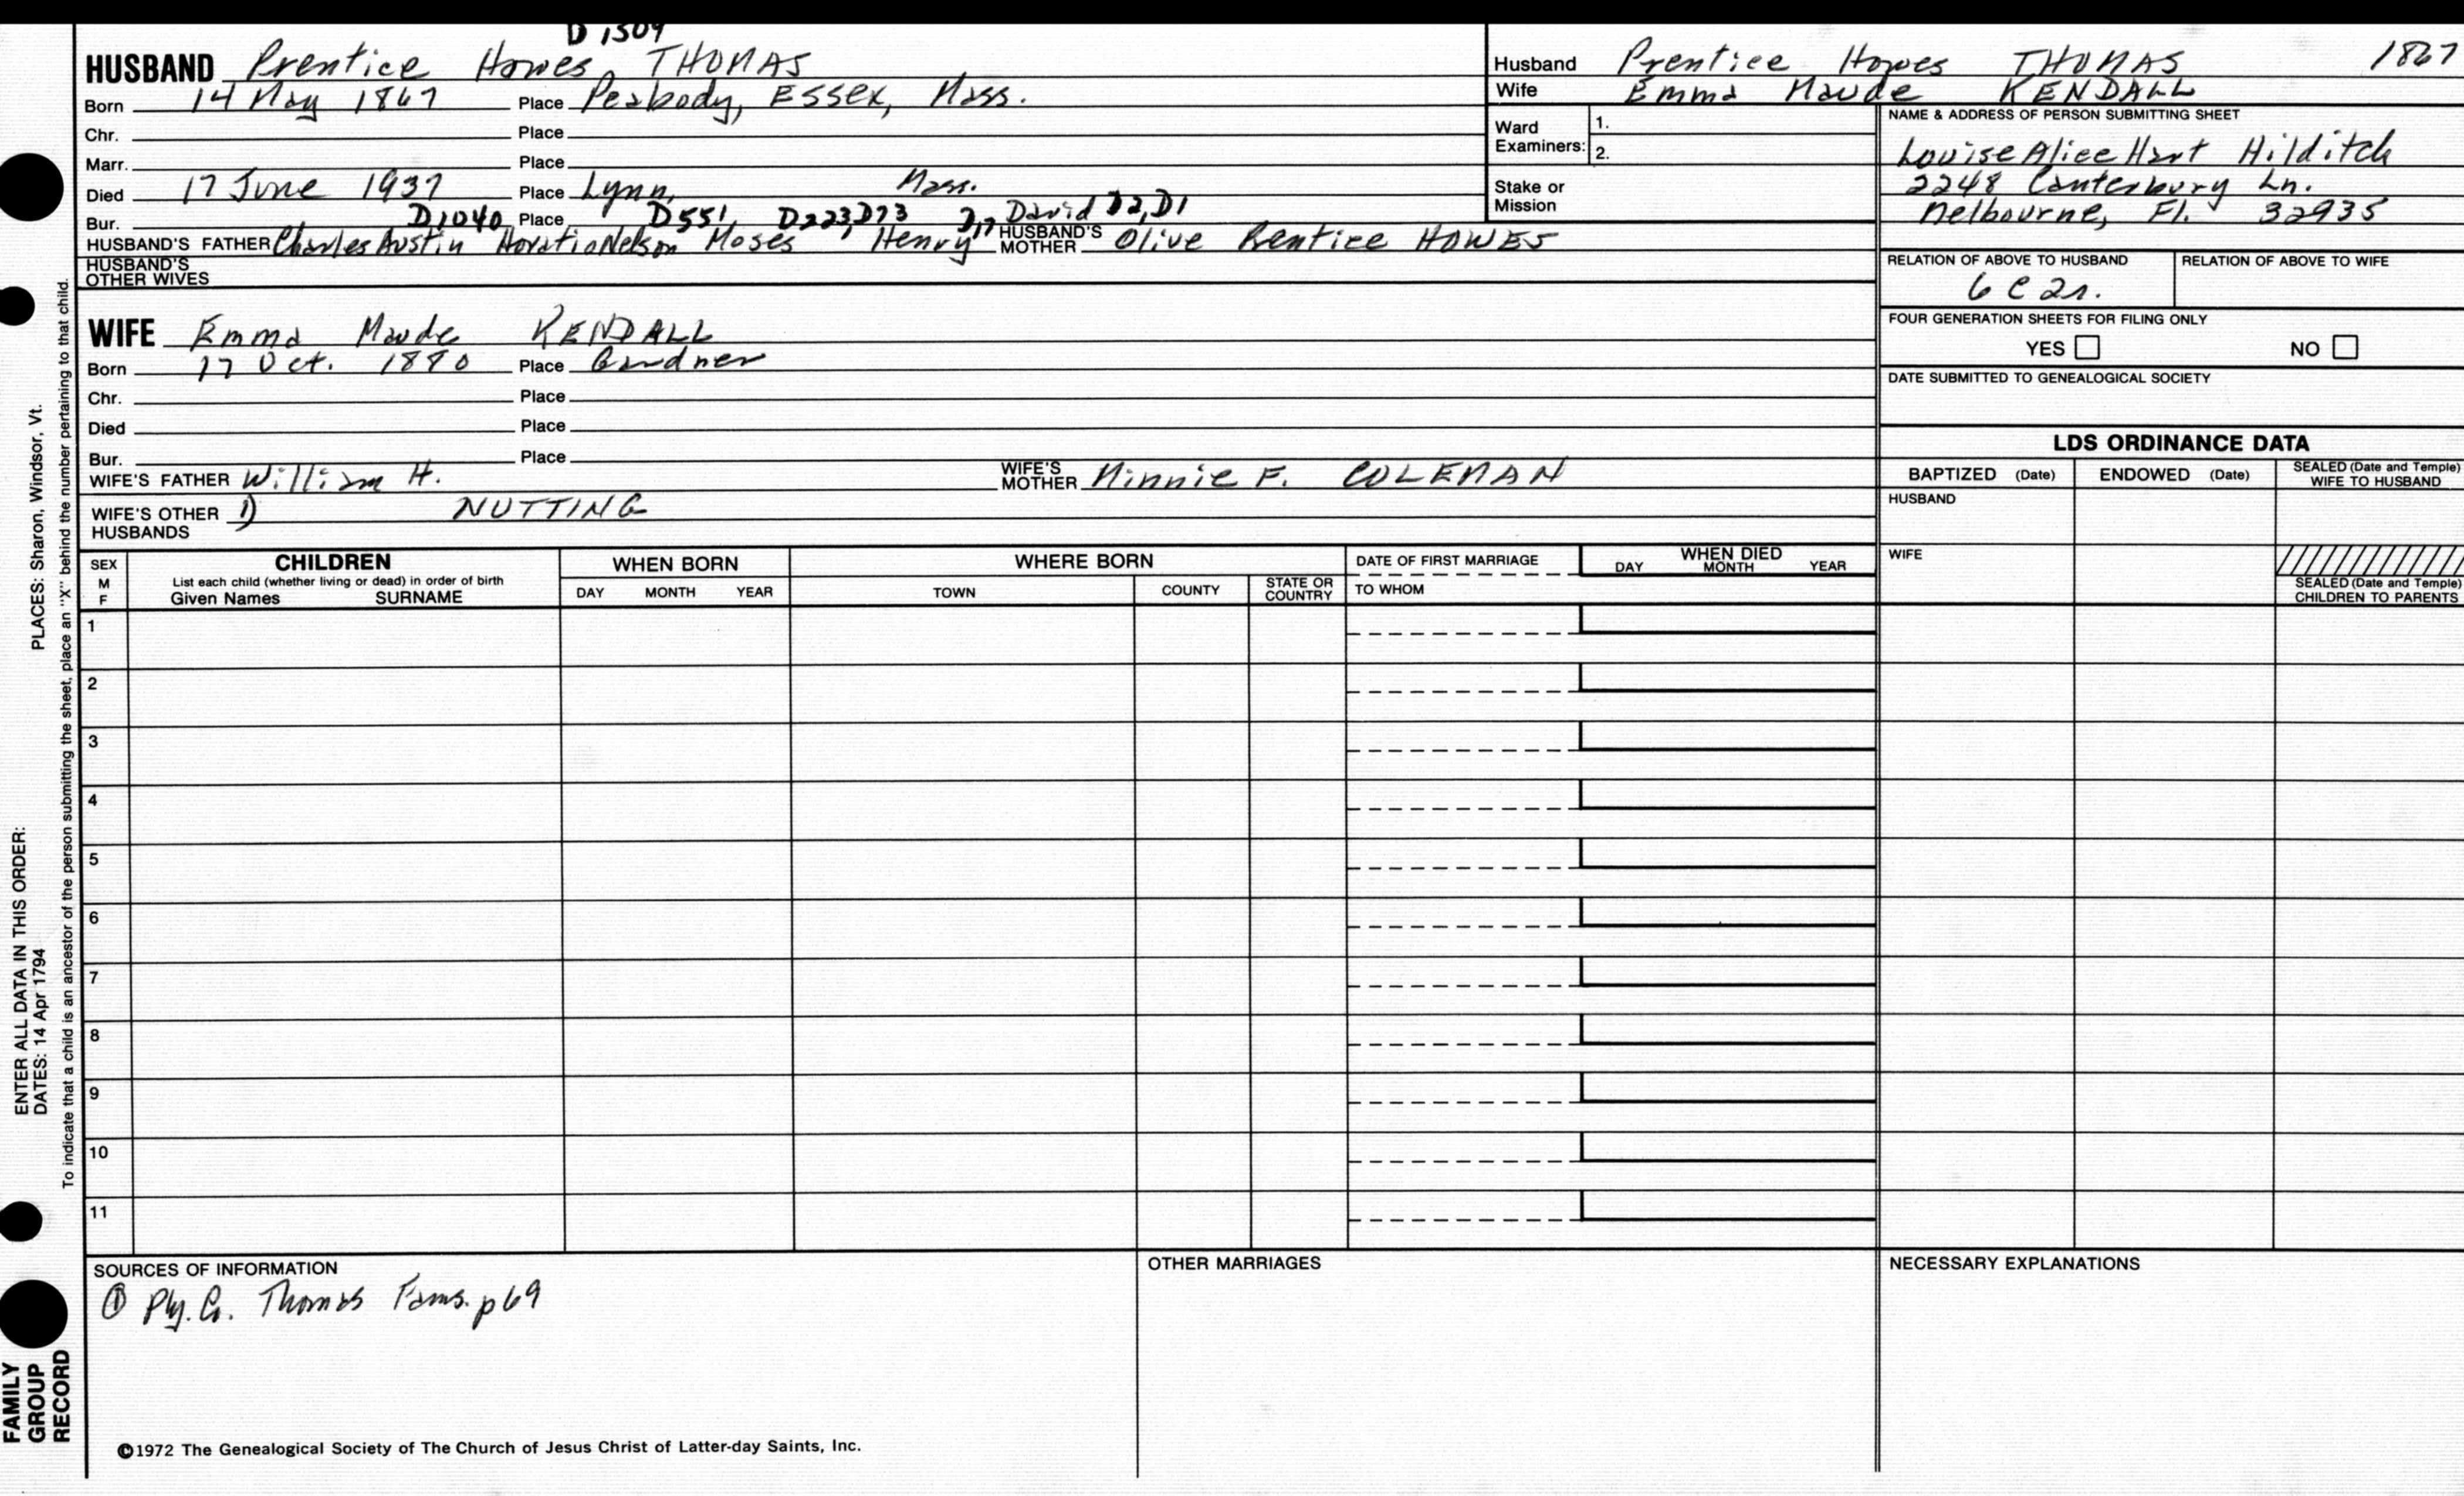 D1509
HUSBAND Prentice Howes THOMAS
Born 14 May 1867 Place Peabody, Essex, Mass.
Chr. Place
Marr. Place
Died 17 June 1937 Place Lynn, Mass.
Bur. D1040 Place D551, D223, D73 D17 David D2, D1
HUSBAND'S FATHER Charles Austin Horatio Nelson Moses Henry HUSBAND'S MOTHER Olive Prentice HOWES
HUSBAND'S OTHER WIVES
Husband Prentice Howes THOMAS 1867
Wife Emma Maude KENDALL
Ward Examiners: 1.
2.
Stake or Mission
NAME & ADDRESS OF PERSON SUBMITTING SHEET
Louise Alice Hart Hilditch
2248 Canterbury Ln.
Melbourne, Fl. 32935
RELATION OF ABOVE TO HUSBAND RELATION OF ABOVE TO WIFE
6 c 2r.
FOUR GENERATION SHEETS FOR FILING ONLY
YES NO
DATE SUBMITTED TO GENEALOGICAL SOCIETY
WIFE Emma Maude KENDALL
Born 17 Oct. 1880 Place Gardner
Chr. Place
Died Place
Bur. Place
WIFE'S FATHER William H. WIFE'S MOTHER Minnie F. COLEMAN
WIFE'S OTHER HUSBANDS 1) NUTTING
LDS ORDINANCE DATA
BAPTIZED (Date) ENDOWED (Date) SEALED (Date and Temple) WIFE TO HUSBAND
HUSBAND
WIFE
SEALED (Date and Temple) CHILDREN TO PARENTS
SEX M F CHILDREN WHEN BORN WHERE BORN DATE OF FIRST MARRIAGE WHEN DIED
List each child (whether living or dead) in order of birth
Given Names SURNAME DAY MONTH YEAR TOWN COUNTY STATE OR COUNTRY TO WHOM DAY MONTH YEAR
1
2
3
4
5
6
7
8
9
10
11
SOURCES OF INFORMATION OTHER MARRIAGES NECESSARY EXPLANATIONS
① Ply. G. Thomas Fams. p69
©1972 The Genealogical Society of The Church of Jesus Christ of Latter-day Saints, Inc.
ENTER ALL DATA IN THIS ORDER: PLACES: Sharon, Windsor, Vt.
DATES: 14 Apr 1794
To indicate that a child is an ancestor of the person submitting the sheet, place an "X" behind the number pertaining to that child.
FAMILY
GROUP
RECORD